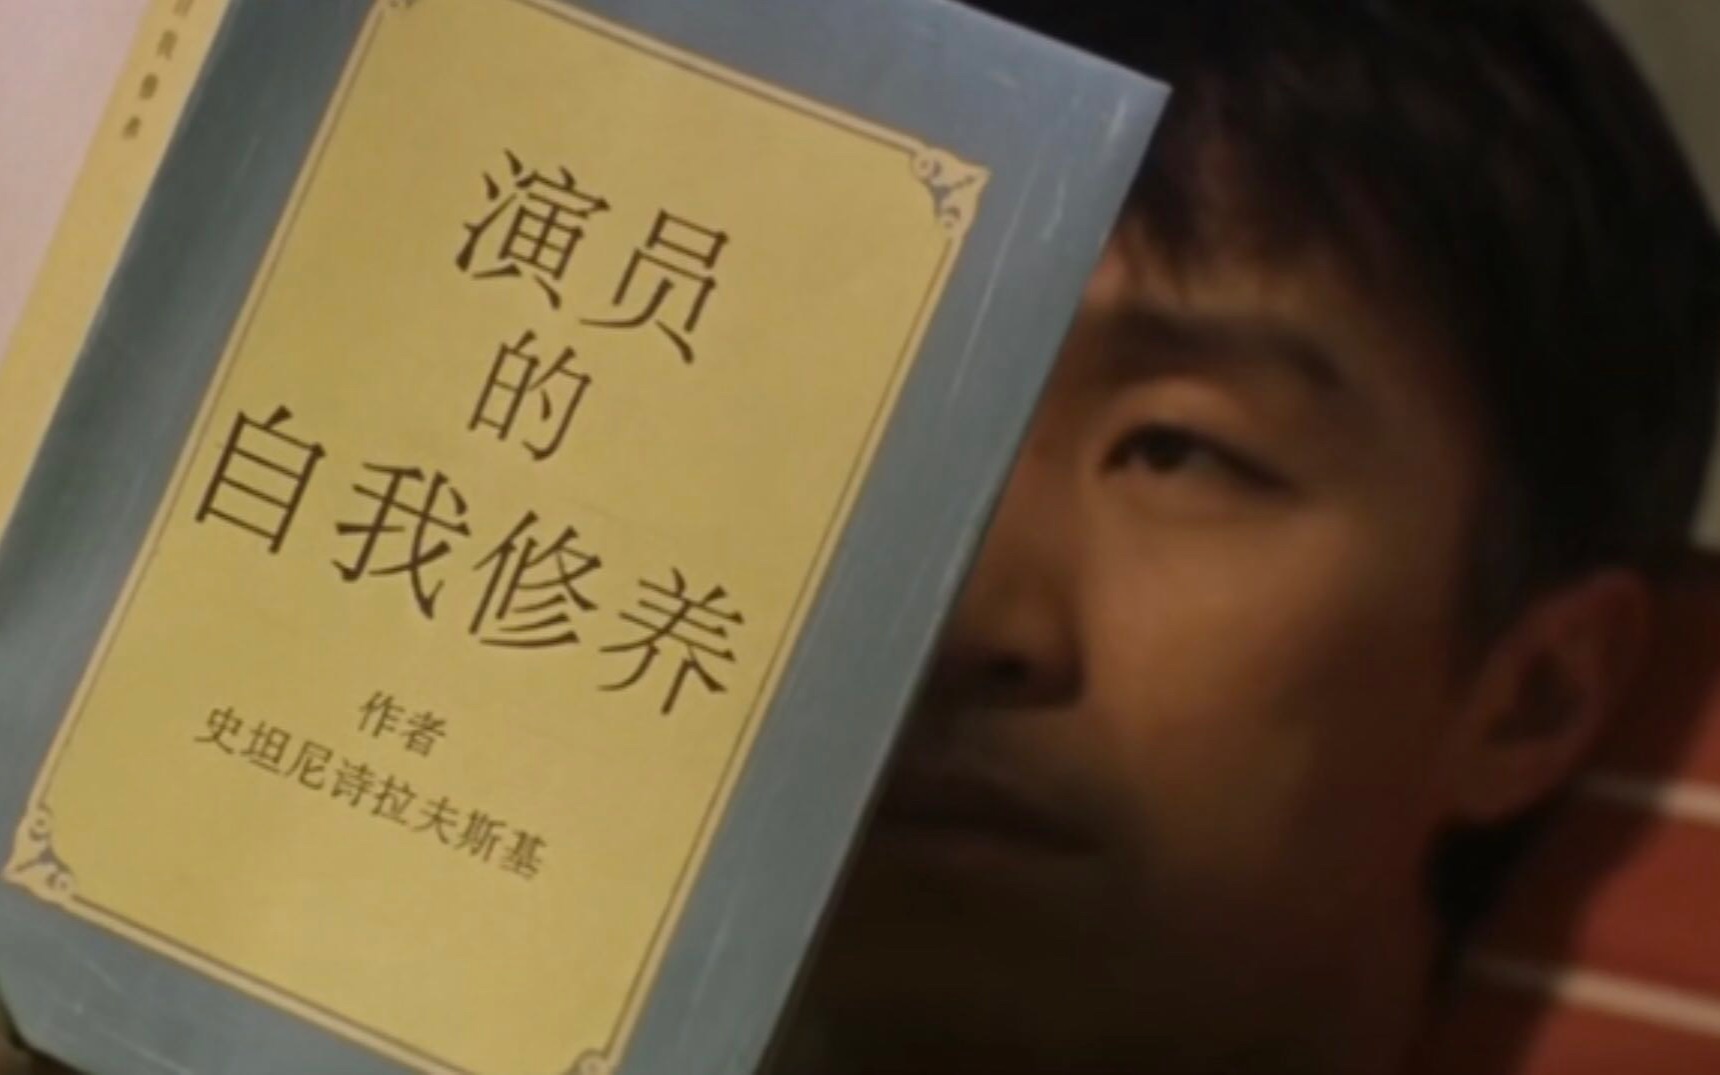 演员
的
自我修养
作者
史坦尼诗拉夫斯基
自我修养